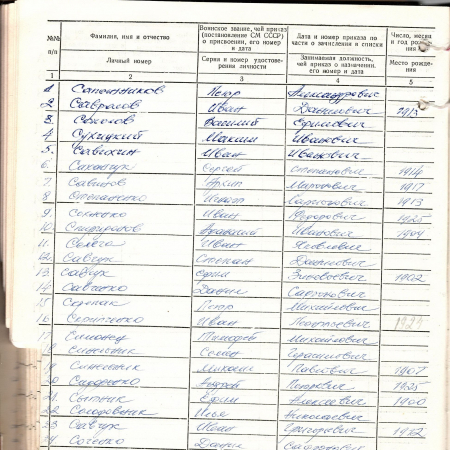 №№ п/п Фамилия, имя и отчество Воинское звание, чей приказ (постановление СМ СССР) о присвоении, его номер и дата Дата и номер приказа по части о зачислении в списки Число, месяц и год рожде-
Личный номер Серия и номер удостове- рения личности Занимаемая должность, чей приказ о назначении, его номер и дата Место рожде- ния
1 2 3 4 5
1. Сапожников Петр Александрович
2. Савралов Иван Данилович 1913
3. Соколов Василий Ефимович
4 Сухицкий Максим Иванович
5. Савихин Иван Иванович
6. Сергей Степанович 1914
7. Савинов Архип Миронович 1917
8. Степаненко Игнат 1913
9. Сененко Иван Федорович 1925
10. Спиридонов Афанасий Иванович 1904
11. Иван Яковлевич
12. Савчук Степан Данилович
13. Савчук Ефим Зиновьевич 1902
14. Савченко Данил
15 Петр Михайлович
16 Скрипченко Иван 1924
17. Симонец Тимофей Михайлович
18 Синельник Семен Герасимович
19 Синельник Михаил Павлович 1907
20 Андрей Петрович 1925
21. Сытник Ефим Алексеевич 1900
22 Илья Николаевич
23 Савчук Иван Григорьевич 1912
24 Сотенко Данил